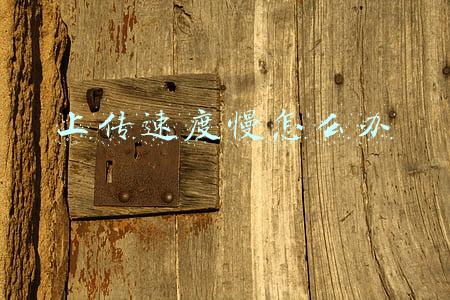 上传速度慢怎么办